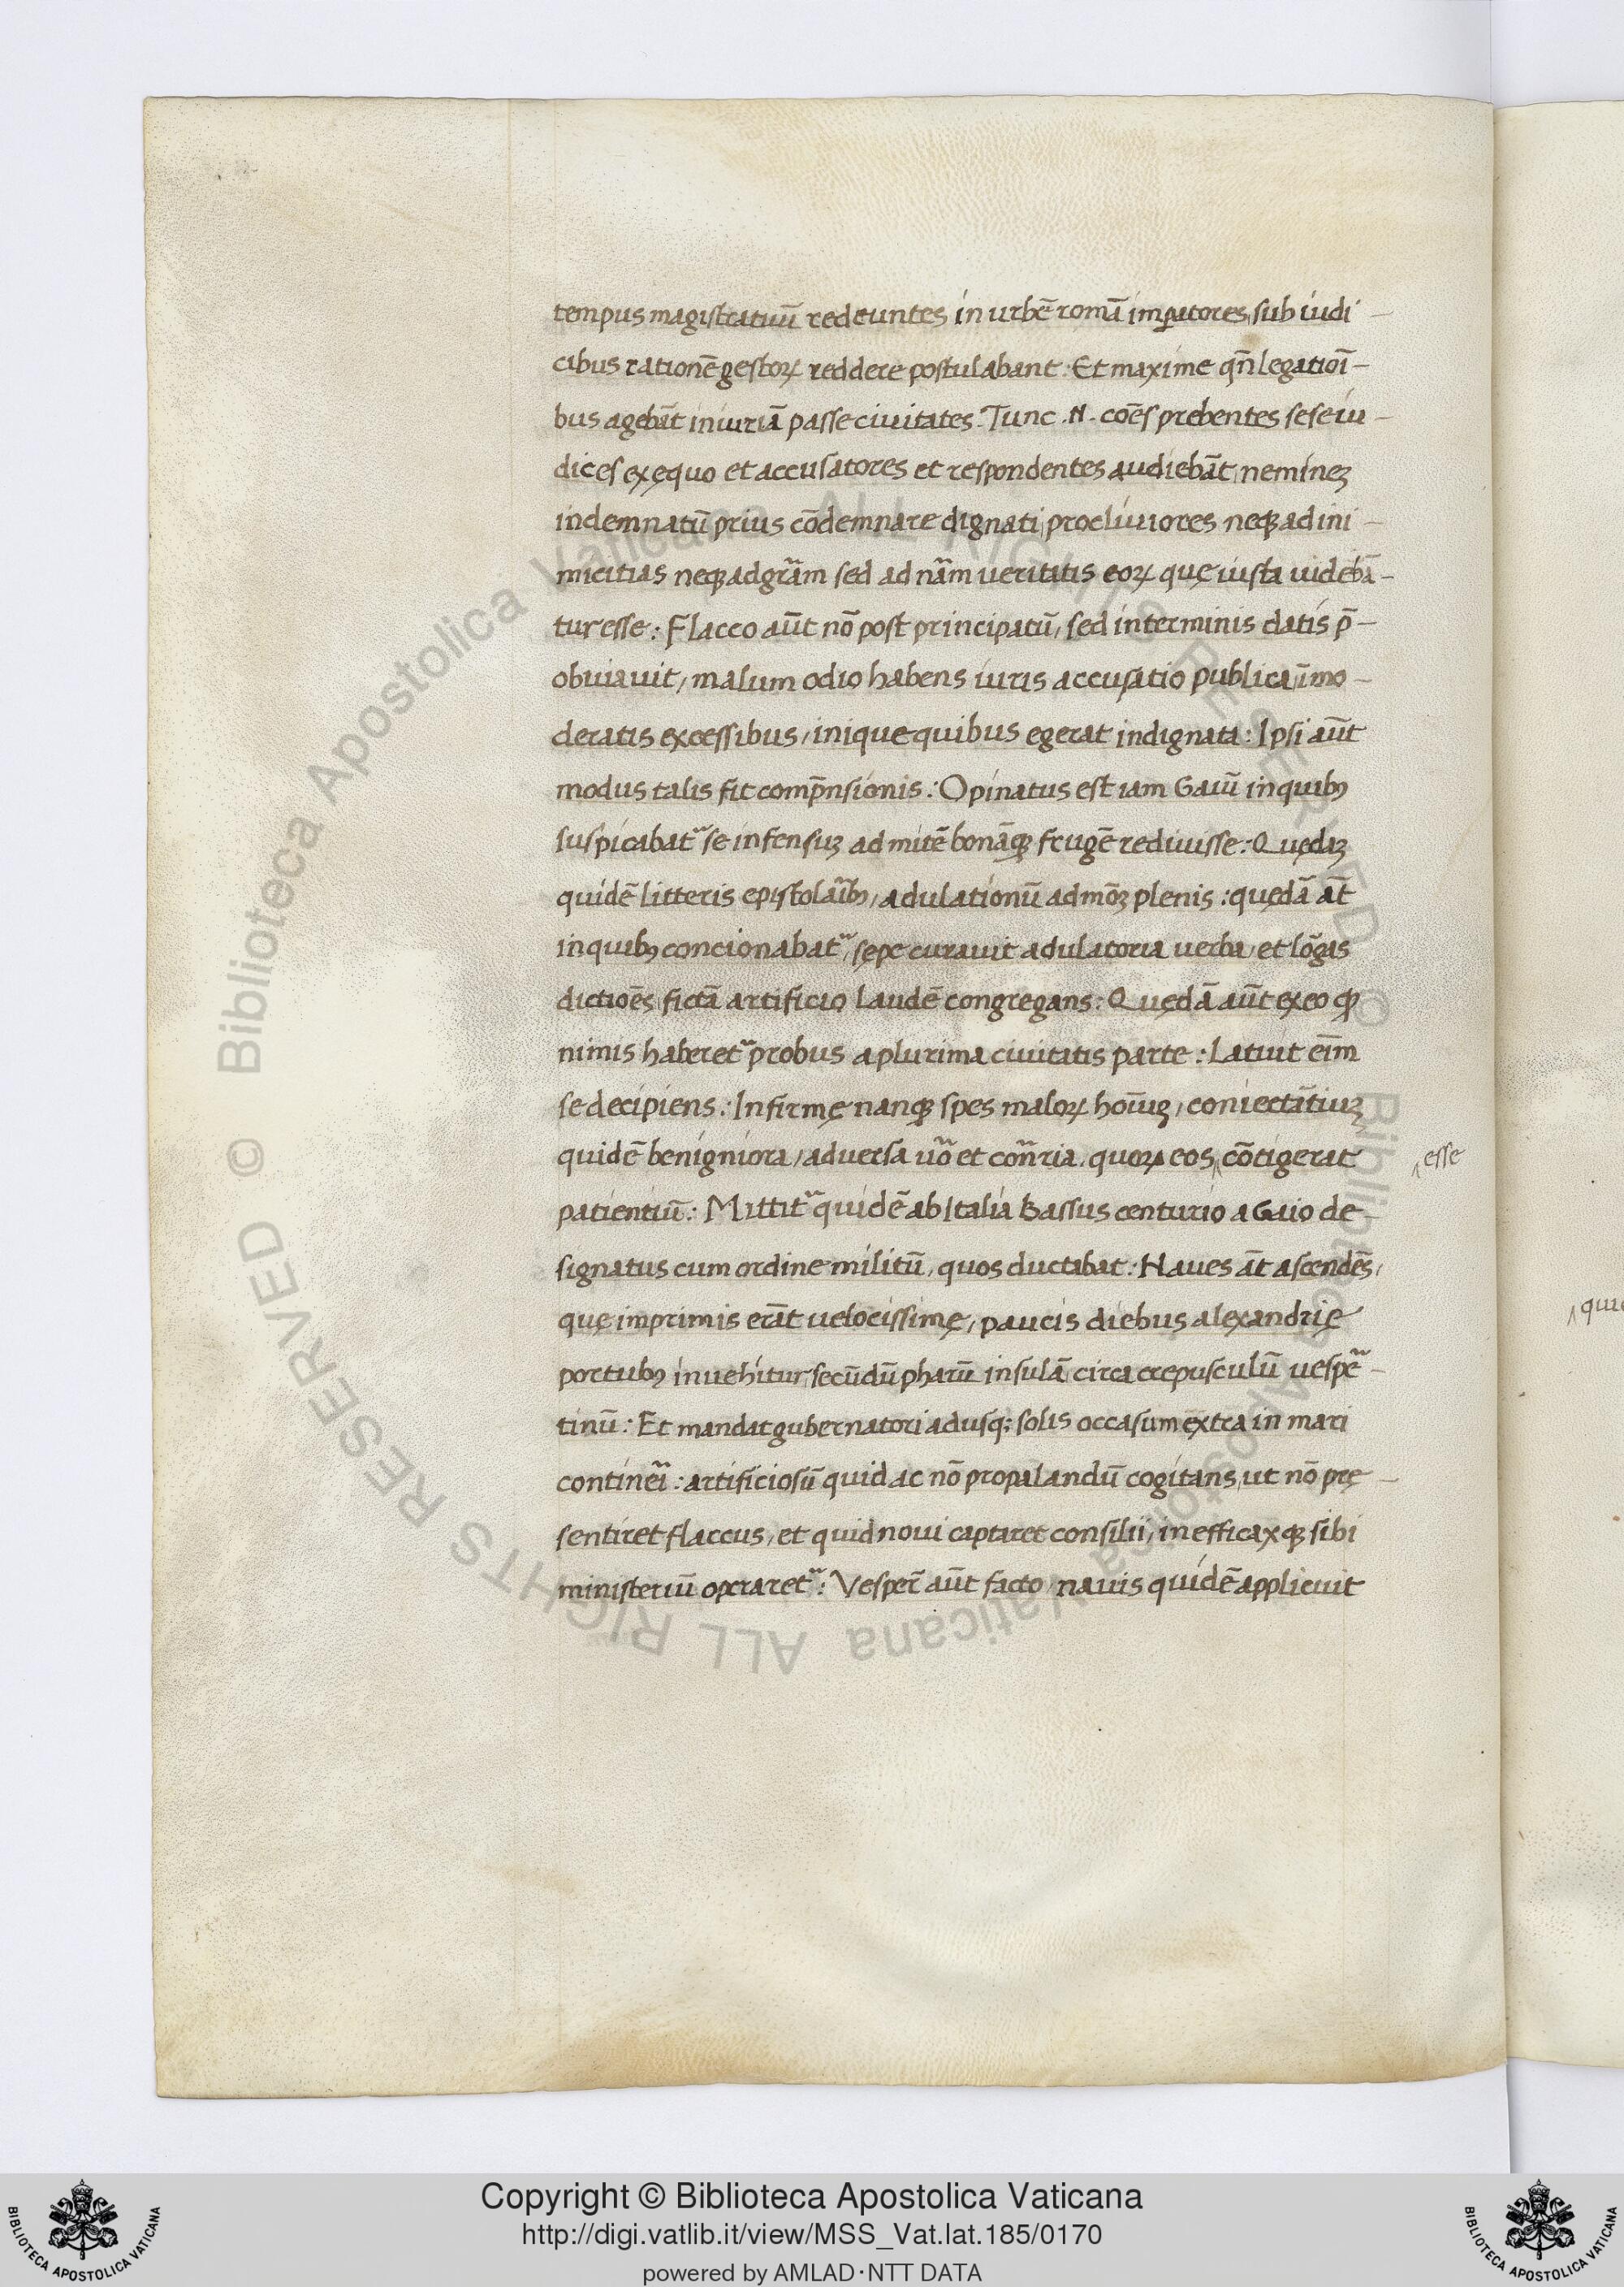 tempus magistratuū redeuntes in urbē romā imꝑatores, sub iudi-
cibus rationē gestoꝝ reddere postulabant: Et maxime qn̄ legatioī-
bus agebāt iniuriā passe ciuitates. Tunc .N. coēs prebentes sese iu-
dices ex ęquo et accusatores et respondentes audiebāt, nemineꝫ
indemnatū prius cōdemnare dignati, procliuiores neqꝫ ad ini-
micitias neqꝫ ad grām sed ad nām ueritatis eoꝝ quę iusta uidebā-
tur esse: Flacco aūt nō post principatū, sed in terminis datis p̄-
obuiauit, malum odio habens iuris accusatio publica, īmo-
deratis excessibus, inique quibus egerat indignata: Ipsi aūt
modus talis fit comp̄nsionis: Opinatus est iam Gaiū in quibꝰ
suspicabatᷣ se infensuꝫ ad mitē bonāqꝫ frugē rediuisse: Quędaꝫ
quidē litteris epistolaībꝰ, adulationū admōꝫ plenis: quędā āt
in quibꝰ concionabatᷣ, sępe curauit adulatoria uerba et lōgas
dictiōes ficta artificio laudē congregans: Quędā aūt ex eo qꝫ
nimis haberetᷣ probus a plurima ciuitatis parte: Latuit eīm
se decipiens: Infirmę nanqꝫ spes maloꝝ hoīuꝫ, coniectātiuꝫ
quidē benigniora, aduersa uō et conr̄ria, quoꝝ eos ‸ cōtigerat
‸ esse
patientiū: Mittitᷣ quidē ab Italia Bassus centurio a Gaio de-
signatus cum ordine militū, quos ductabat: Naues āt ascendēs,
quę imprimis erāt uelocissimę, paucis diebus alexandrię
portubꝰ inuehitur, secūdū pharū insulā circa crepusculū uespē-
tinū: Et mandat gubernatori adusqꝫ solis occasum extra in mari
contineī: artificiosū quid ac nō propalandū cogitans, ut nō prę-
sentiret flaccus, et quid noui captaret consilii, inefficaxqꝫ sibi
ministeriū operaretᷣ: Vesper̄ aūt facto, nauis quidē applicuit
‸ qui
Copyright © Biblioteca Apostolica Vaticana
http://digi.vatlib.it/view/MSS_Vat.lat.185/0170
powered by AMLAD·NTT DATA
BIBLIOTECA APOSTOLICA VATICANA
BIBLIOTECA APOSTOLICA VATICANA
© Biblioteca Apostolica Vaticana ALL RIGHTS RESERVED © Biblioteca Apostolica Vaticana ALL RIGHTS RESERVED